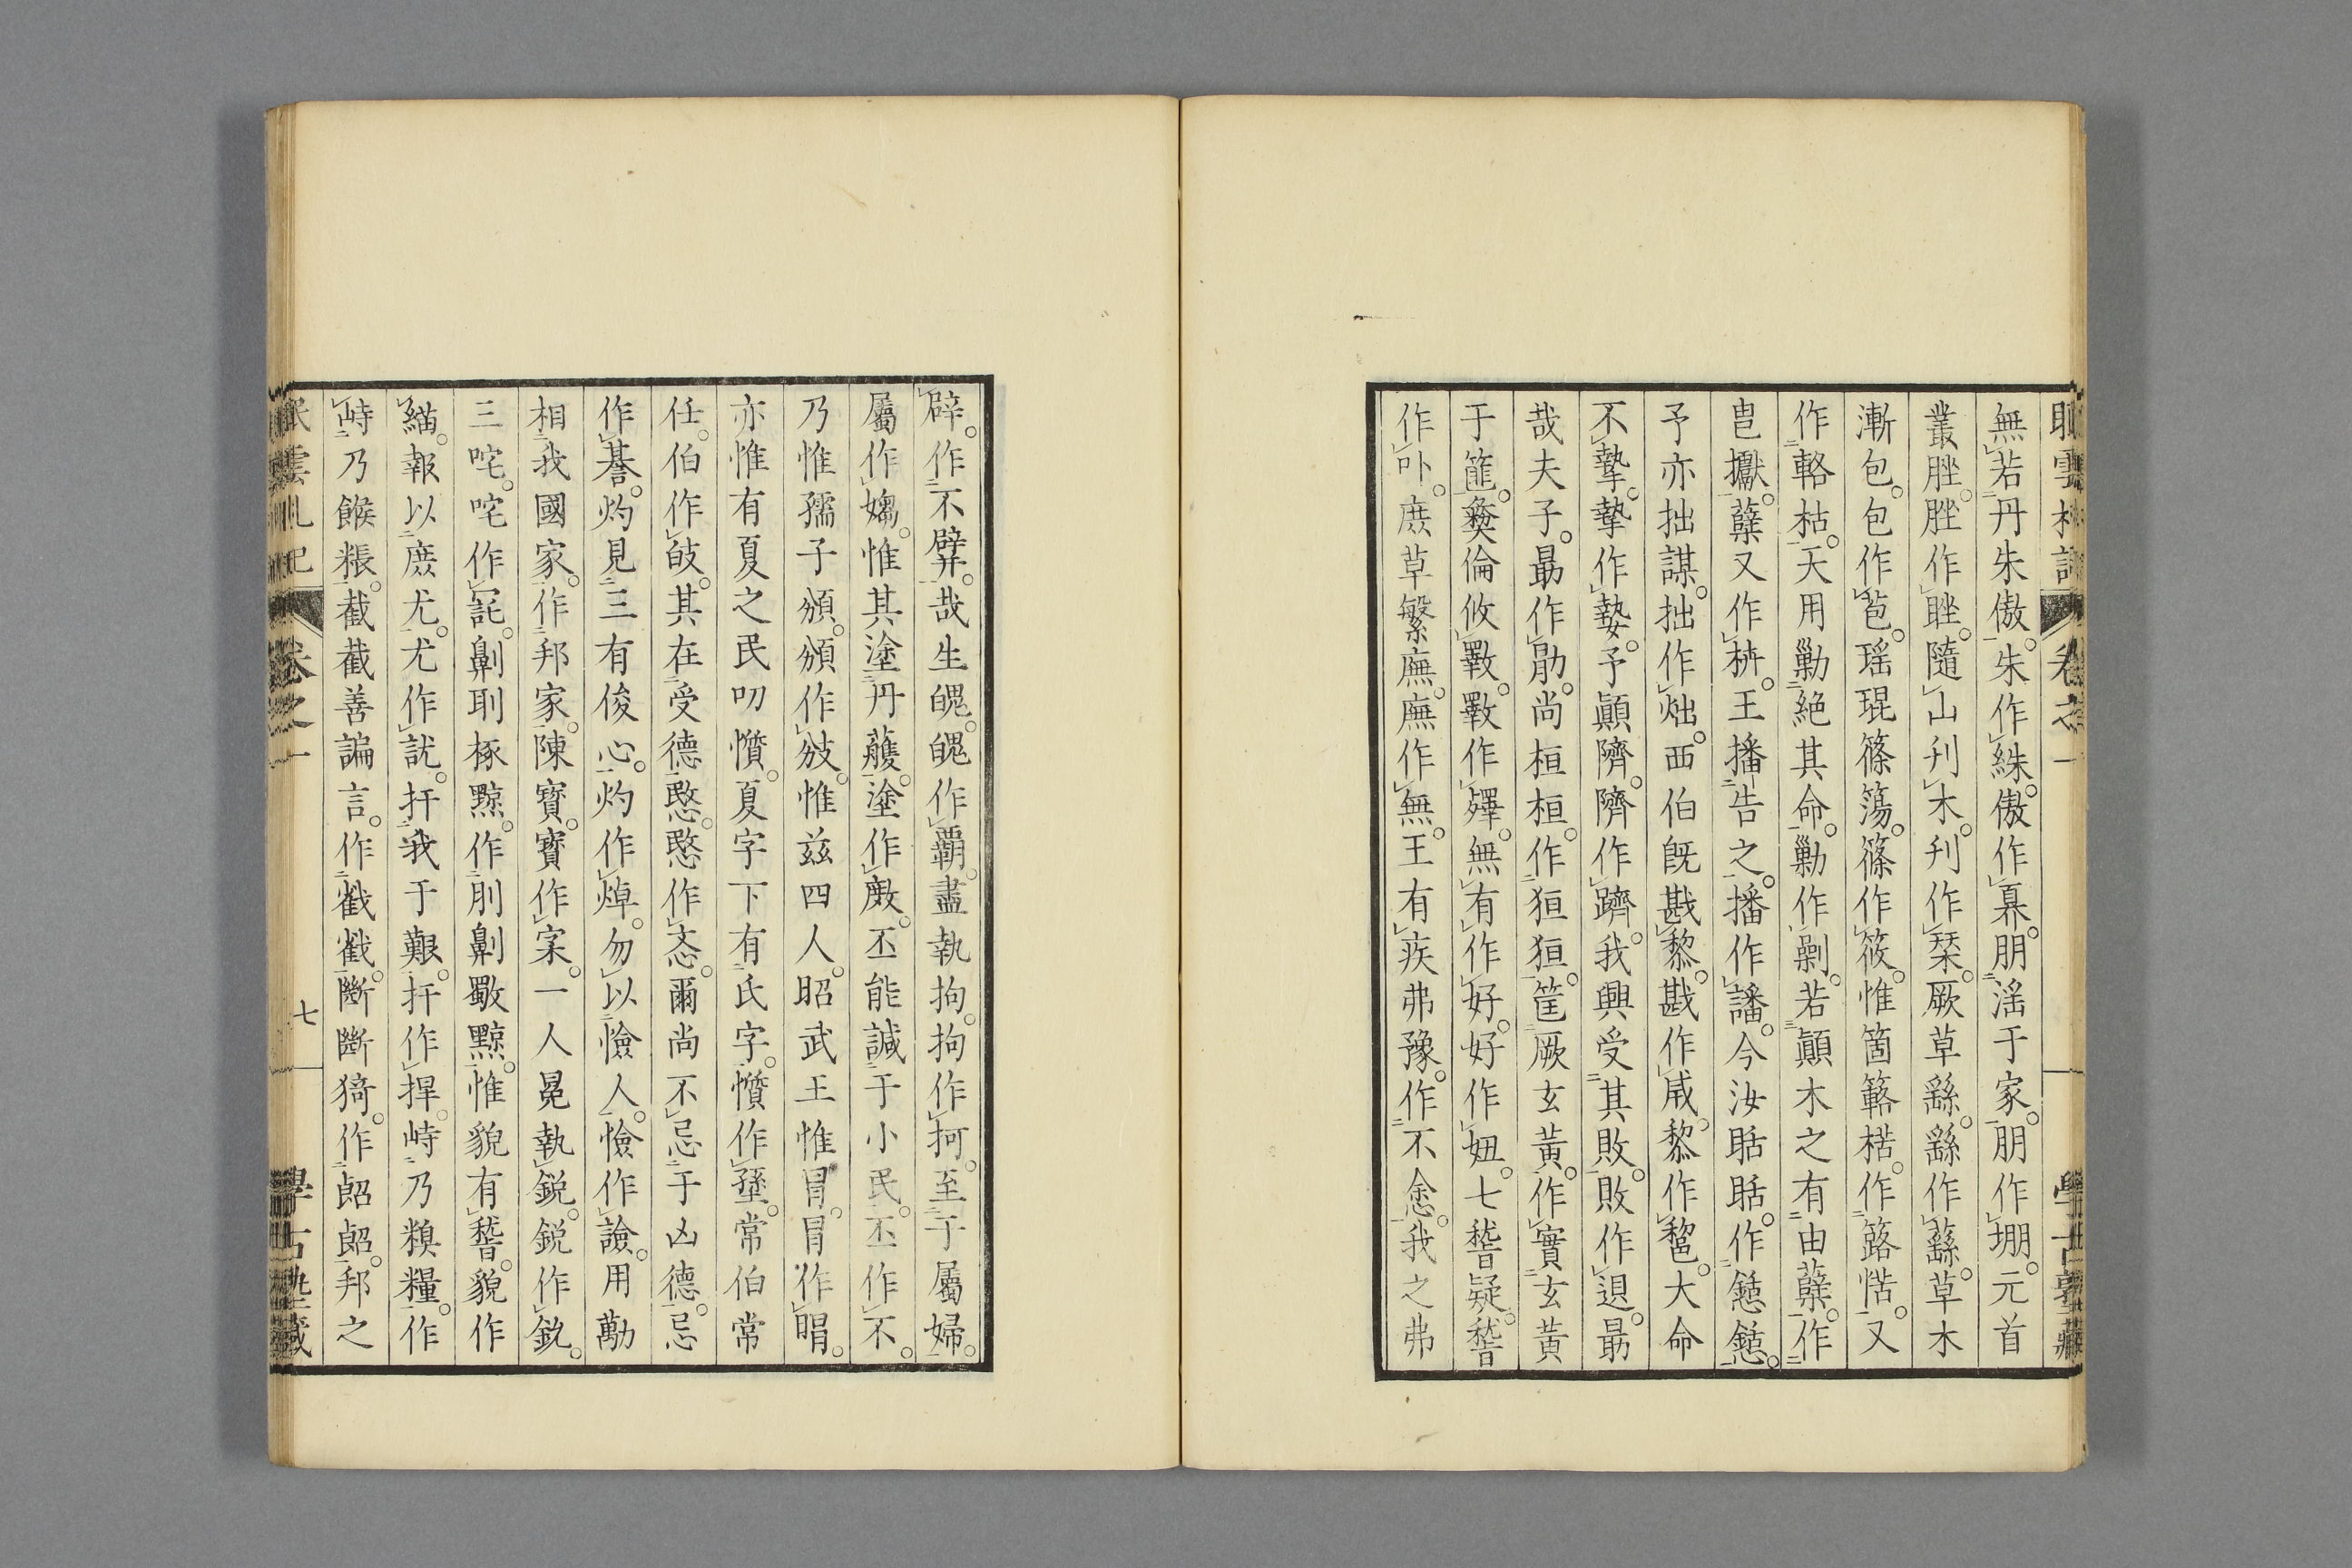 無若丹朱傲。朱作絑。傲作奡。朋淫于家。朋作堋。元首
叢脞。脞作睉。隨山刋木。刋作栞。厥草繇。繇作蘨。草木
漸包。包作苞。瑶琨篠簜。篠作筱。惟箘簵楛。作簬㮐。又
作輅枯。天用勦絕其命。勦作剿。若顚木之有由蘖。作
㽕㯍。蘖又作枿。王播告之。播作譒。今汝聒聒。作𢠢𢠢。
予亦拙謀。拙作炪。西伯旣戡黎。戡作𢦟。黎作𨛫。大命
不摯。摯作㜘。予顚隮。隮作躋。我興受其敗。敗作退。勖
哉夫子。勖作勛。尚桓桓。作狟狟。筐厥玄黃。作實玄黃
于篚。彝倫攸斁。斁作殬。無有作好。好作㚥。七稽疑。稽
作卟。庶草繁廡。廡作無。王有疾弗豫。作不悆。我之弗
辟。作不𨐨。哉生魄。魄作霸。盡執拘。拘作抲。至于屬婦。
屬作媰。惟其塗丹雘。塗作𢾖。丕能諴于小民。丕作不。
乃惟孺子頒。頒作攽。惟茲四人。昭武王惟冒。冒作㫚。
亦惟有夏之民叨懫。夏字下有氏字。懫作𦤶。常伯常
任。伯作㪏。其在受德暋。暋作忞。爾尚不忌于凶德。忌
作諅。灼見三有俊心。灼作焯。勿以憸人。憸作譣。用勱
相我國家。作邦家。陳寶。寶作宲。一人冕執銳。銳作鈗。
三咤。咤作詫。劓刵椓黥。作刖劓斀黥。惟貌有稽。貌作
緢。報以庶尤。尤作訧。扞我于艱。扞作捍。峙乃糗糧。作
峙乃餱粻。截截善諞言。作戳戳。斷斷猗。作𠸿𠸿。邦之
卷之一
七